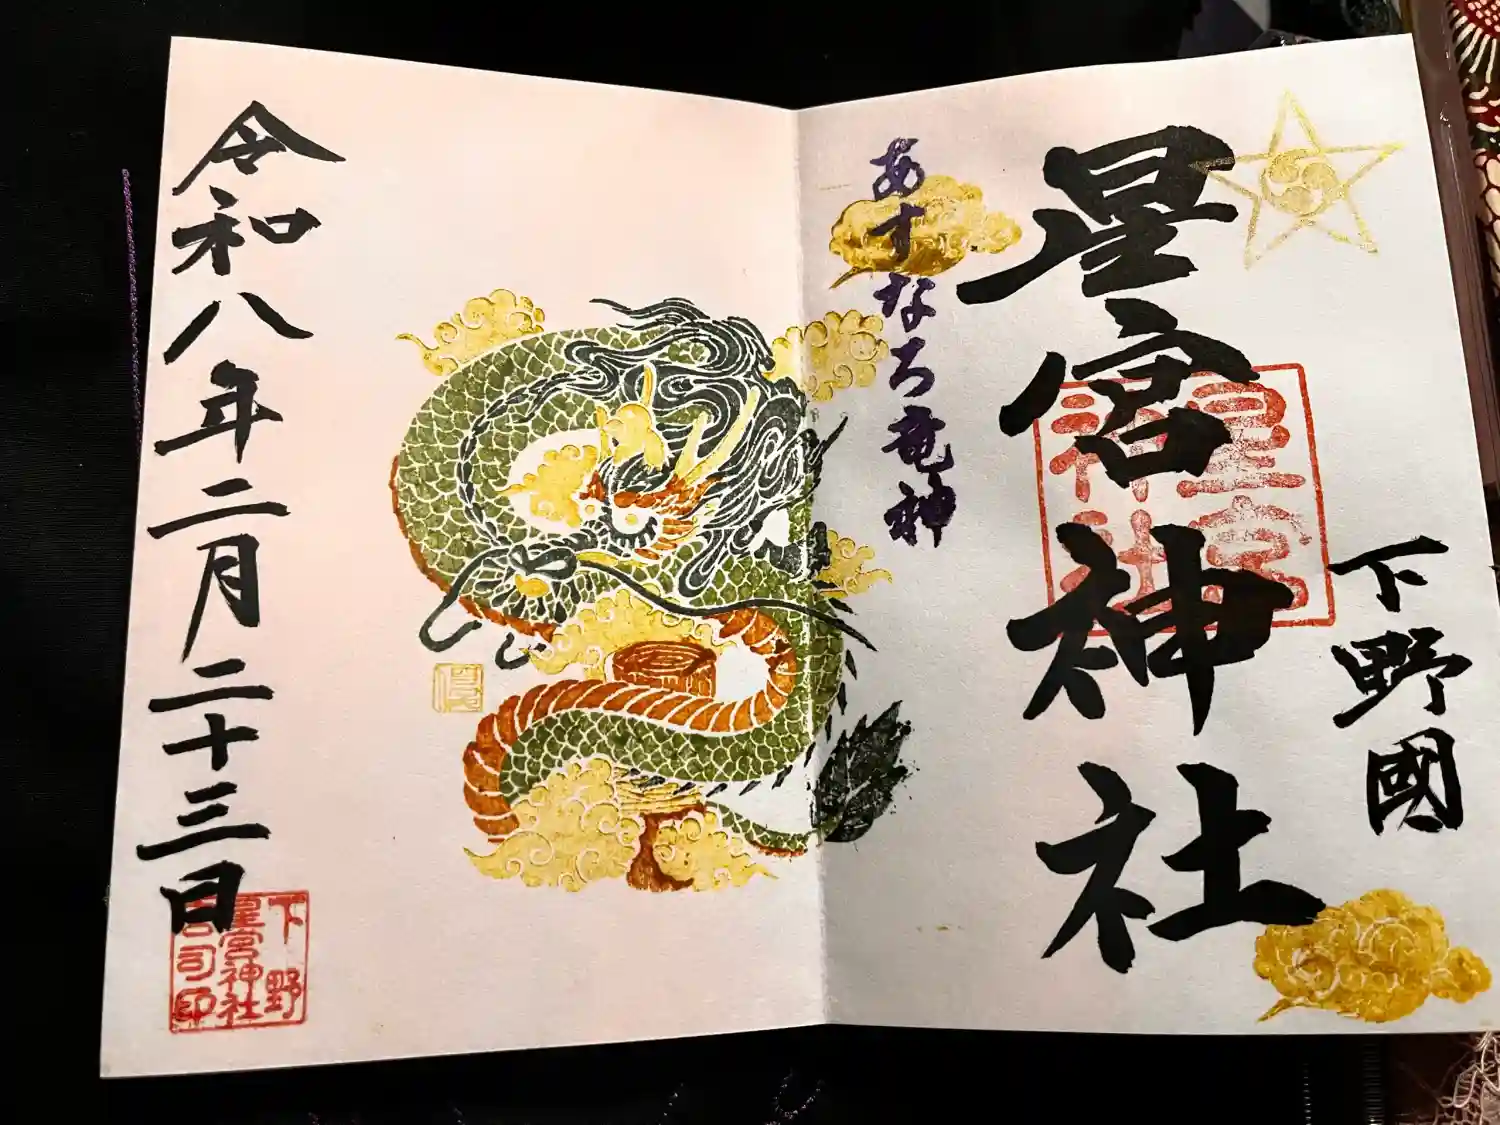 下野國
星宮神社
星宮
神社
あすなろ竜神
令和八年二月二十三日
下野
星宮神社
宮司印